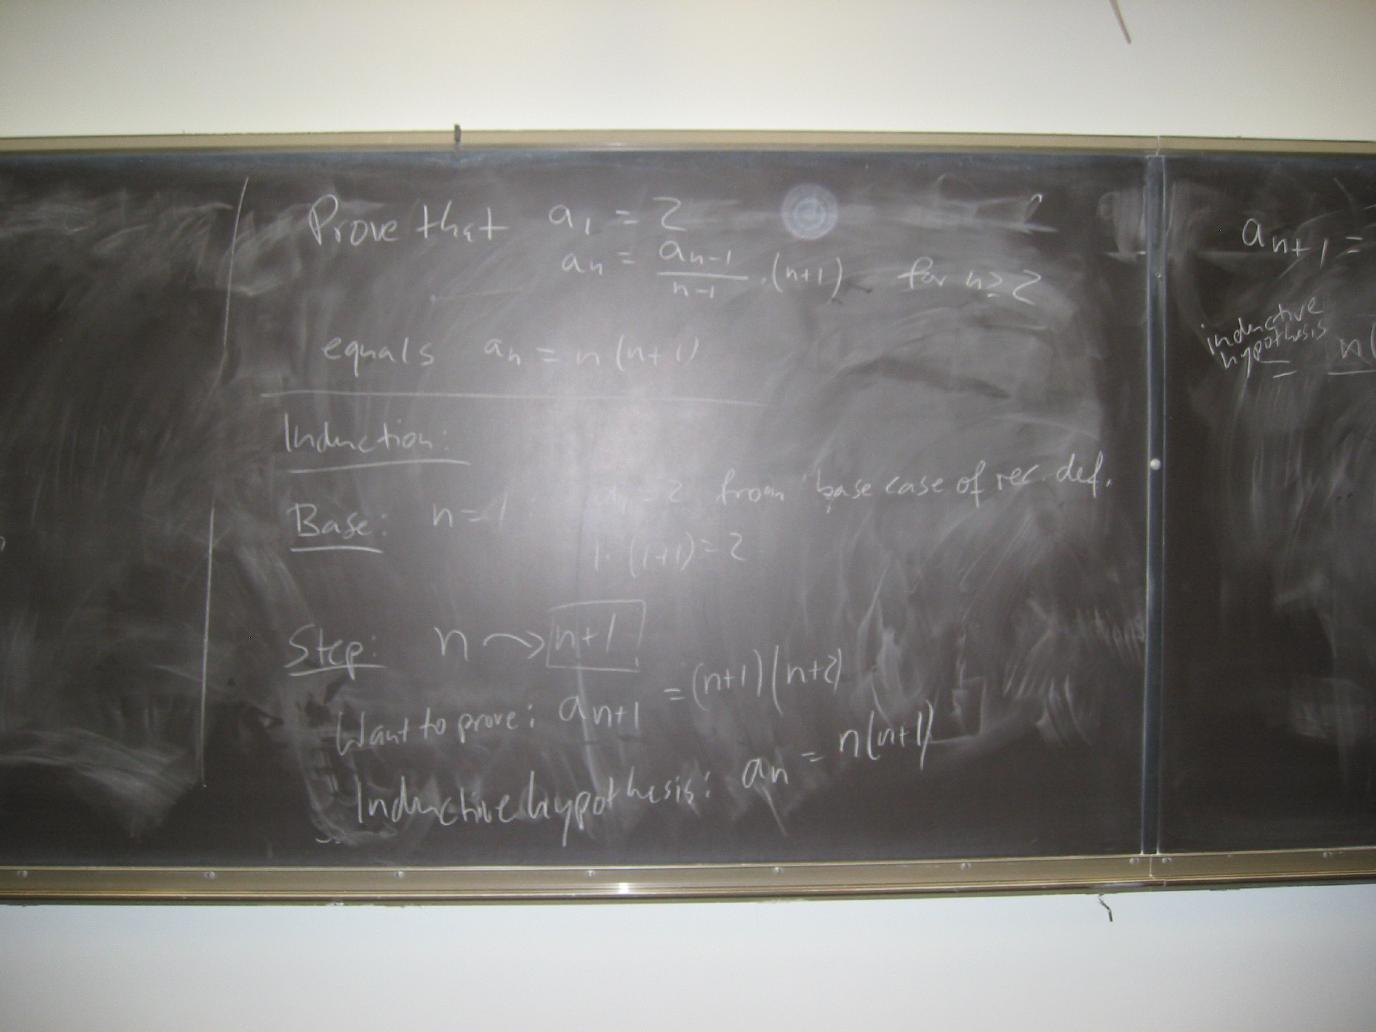 Prove that a₁ = 2
aₙ = aₙ₋₁/n-1 · (n+1) for n ≥ 2
equals aₙ = n(n+1)
Induction:
Base: n=1 a₁ = 2 from base case of rec. def.
1·(1+1)=2
Step: n → n+1
Want to prove: aₙ₊₁ = (n+1)(n+2)
Inductive hypothesis: aₙ = n(n+1)
aₙ₊₁ =
inductive
hypothesis
= n(